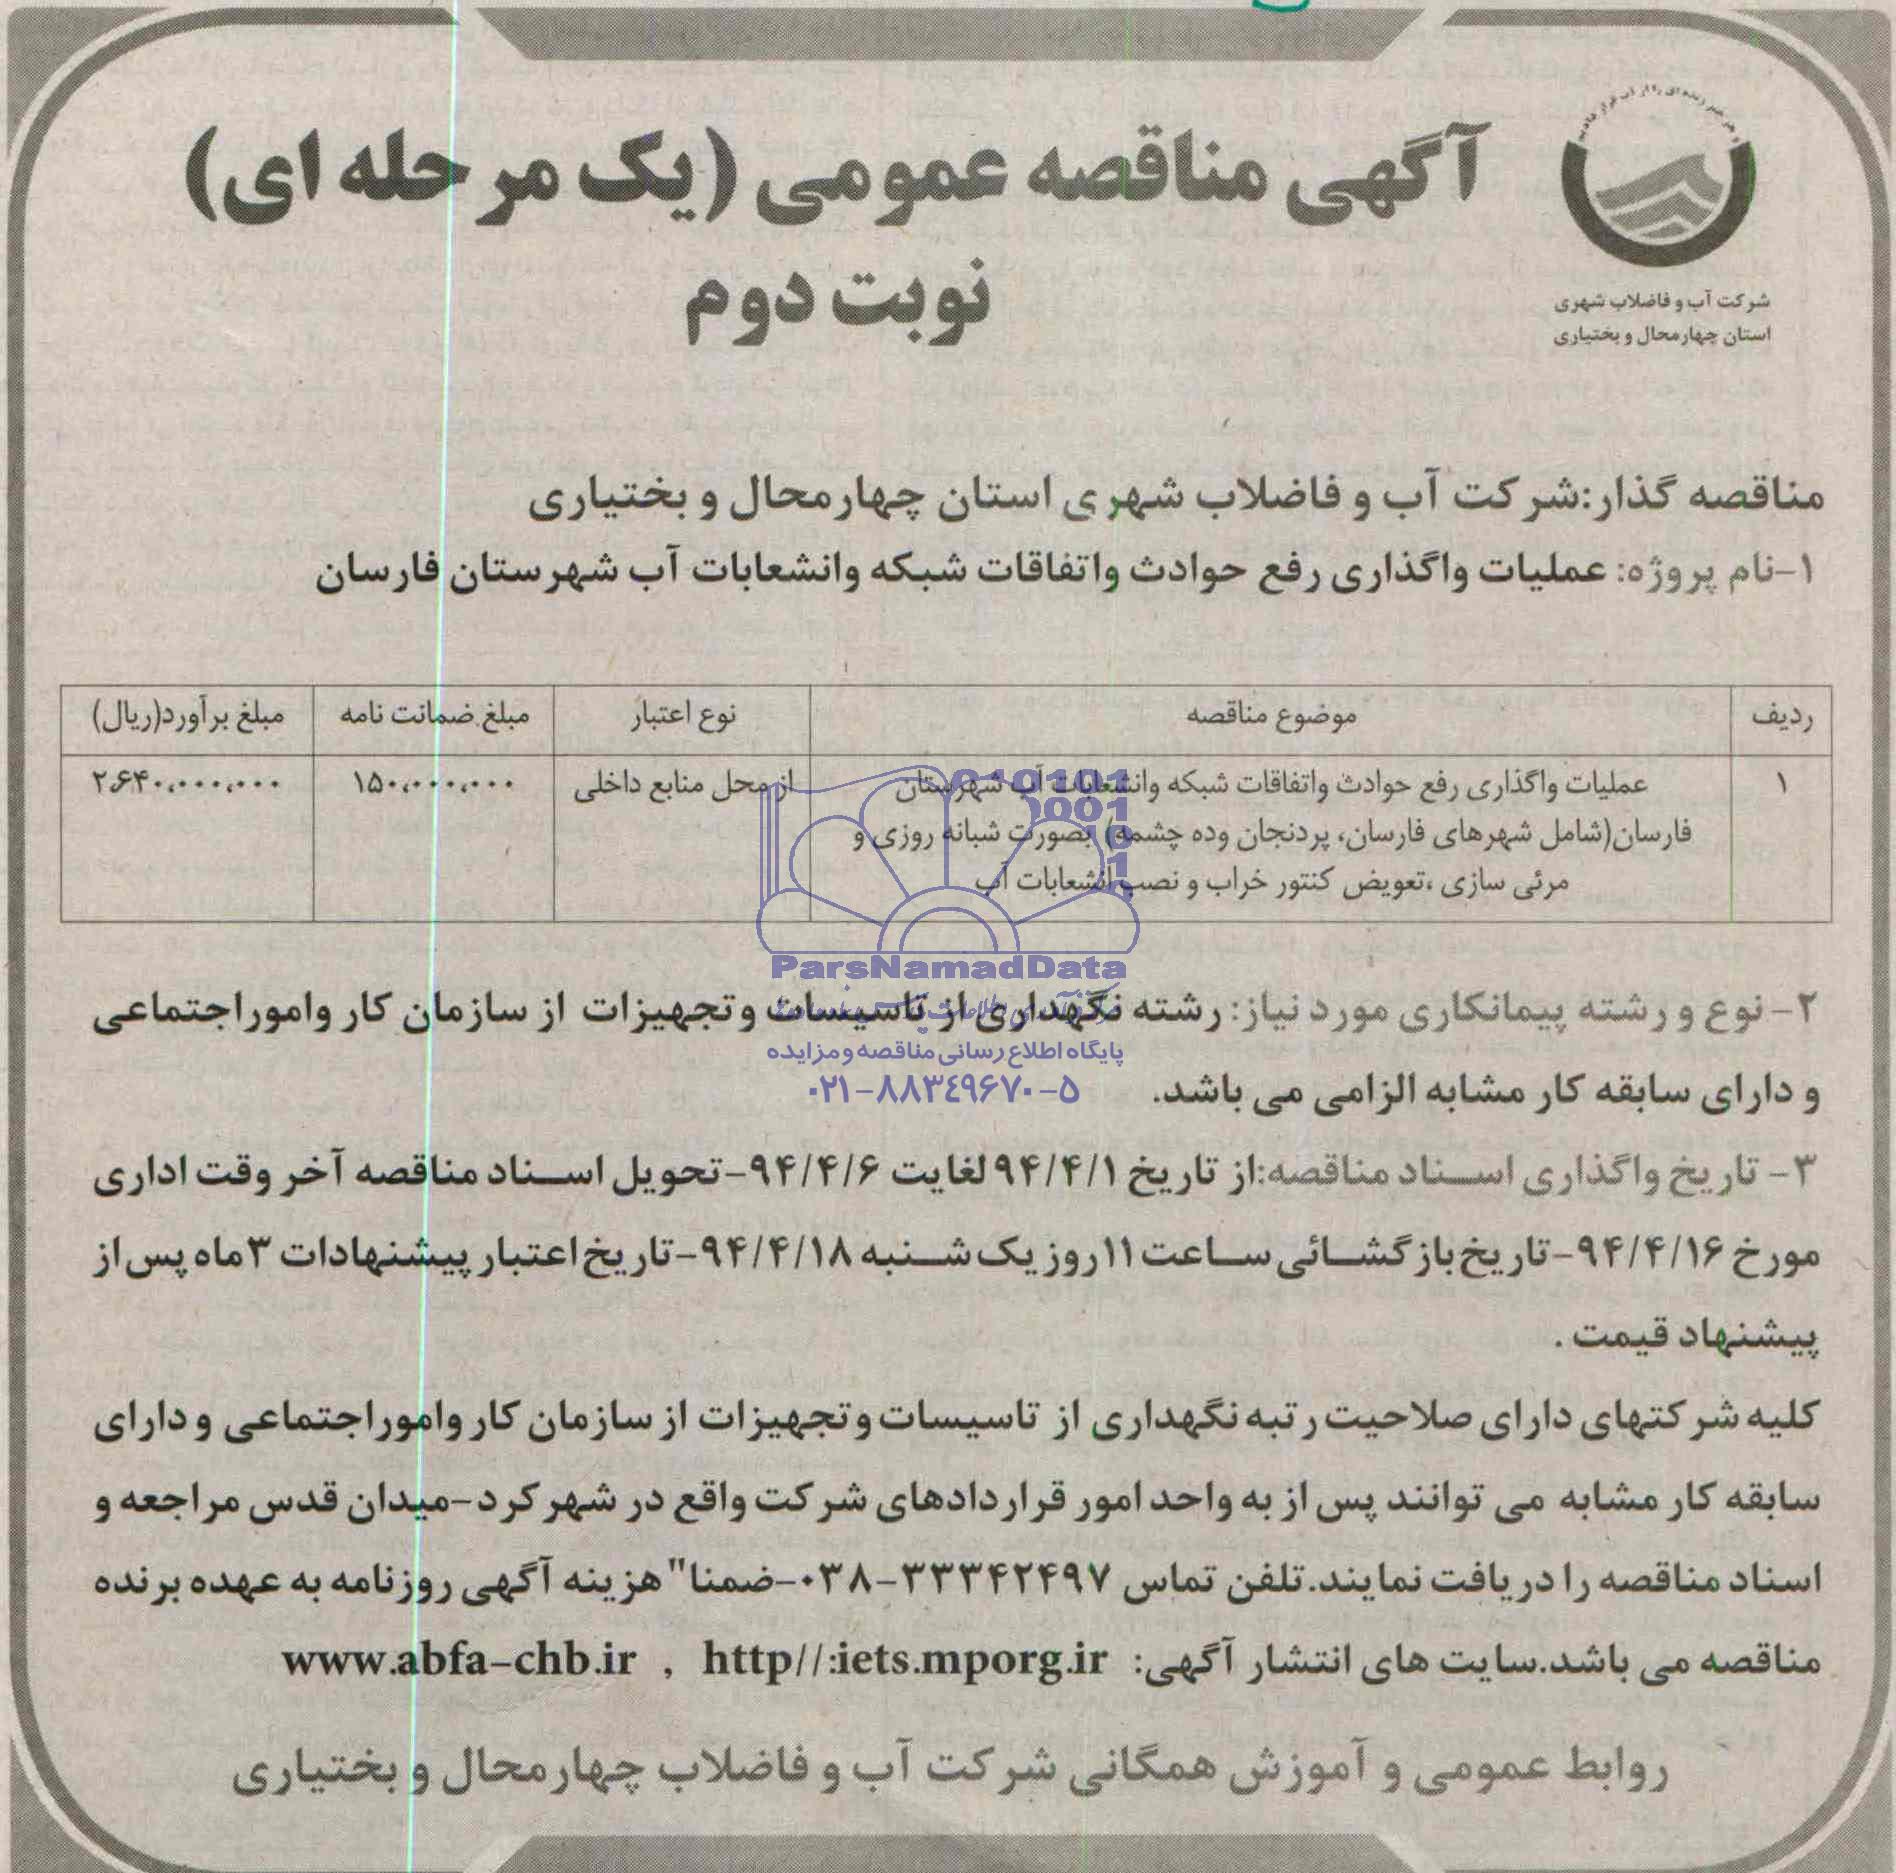 و هر چیز زنده ای را از آب قرار دادیم
آگهی مناقصه عمومی (یک مرحله ای)
نوبت دوم
شرکت آب و فاضلاب شهری
استان چهارمحال و بختیاری
مناقصه گذار:شرکت آب و فاضلاب شهری استان چهارمحال و بختیاری
۱-نام پروژه: عملیات واگذاری رفع حوادث واتفاقات شبکه وانشعابات آب شهرستان فارسان
ردیف موضوع مناقصه نوع اعتبار مبلغ ضمانت نامه مبلغ برآورد(ریال)
۱ عملیات واگذاری رفع حوادث واتفاقات شبکه وانشعابات آب شهرستان از محل منابع داخلی ۱۵۰،۰۰۰،۰۰۰ ۲،۶۴۰،۰۰۰،۰۰۰
فارسان(شامل شهرهای فارسان، پردنجان وده چشمه) بصورت شبانه روزی و
مرئی سازی ،تعویض کنتور خراب و نصب انشعابات آب
010101
0001
ParsNamadData
۲- نوع و رشته پیمانکاری مورد نیاز: رشته نگهداری از تاسیسات وتجهیزات از سازمان کار واموراجتماعی
پایگاه اطلاع رسانی مناقصه و مزایده
۰۲۱-۸۸۳۴۹۶۷۰-۵
و دارای سابقه کار مشابه الزامی می باشد.
۳- تاریخ واگذاری اسناد مناقصه:از تاریخ ۹۴/۴/۱ لغایت ۹۴/۴/۶-تحویل اسناد مناقصه آخر وقت اداری
مورخ ۹۴/۴/۱۶-تاریخ بازگشائی ساعت ۱۱روز یک شنبه ۹۴/۴/۱۸-تاریخ اعتبار پیشنهادات ۳ماه پس از
پیشنهاد قیمت .
کلیه شرکتهای دارای صلاحیت رتبه نگهداری از تاسیسات وتجهیزات از سازمان کار واموراجتماعی و دارای
سابقه کار مشابه می توانند پس از به واحد امور قراردادهای شرکت واقع در شهرکرد-میدان قدس مراجعه و
اسناد مناقصه را دریافت نمایند.تلفن تماس ۳۳۳۴۲۴۹۷-۰۳۸-ضمنا" هزینه آگهی روزنامه به عهده برنده
مناقصه می باشد.سایت های انتشار آگهی: http//:iets.mporg.ir , www.abfa-chb.ir
روابط عمومی و آموزش همگانی شرکت آب و فاضلاب چهارمحال و بختیاری